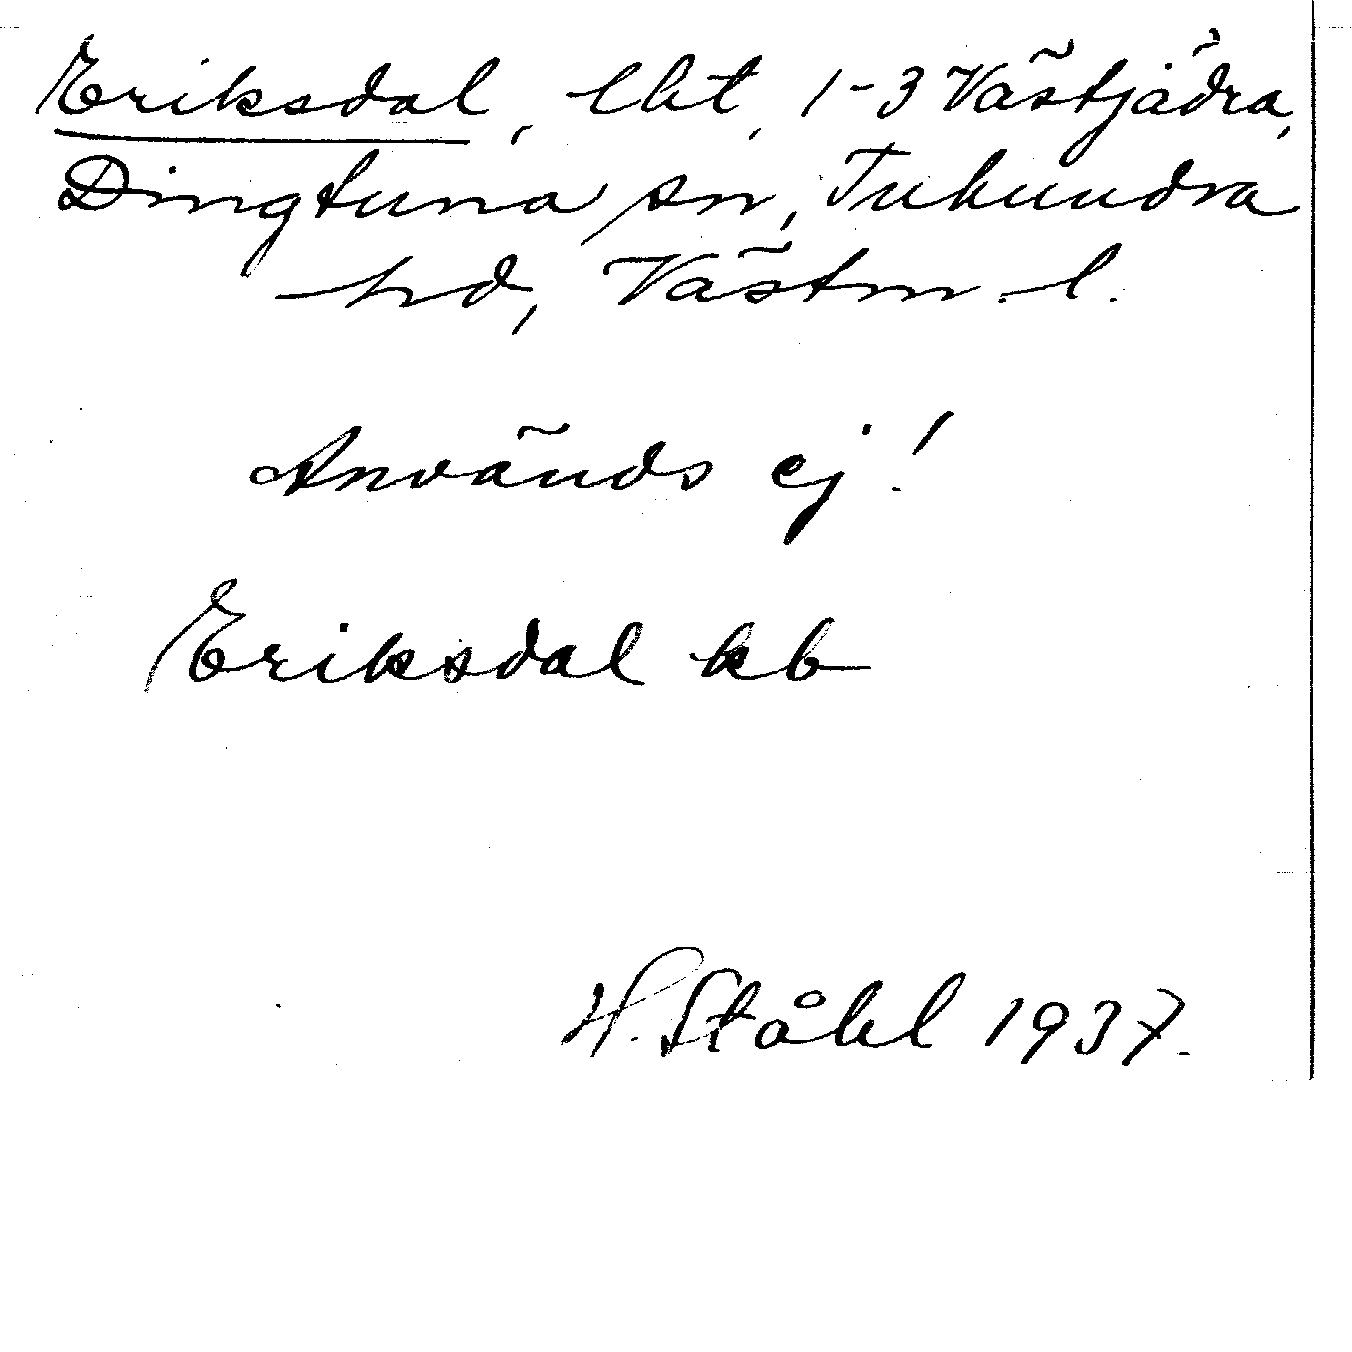 Eriksdal, lht, 1-3 Västjädra,
Dingtuna sn, Tuhundra
hd, Västm. l.
Används ej!
Eriksdal kb
H. Ståhl 1937.